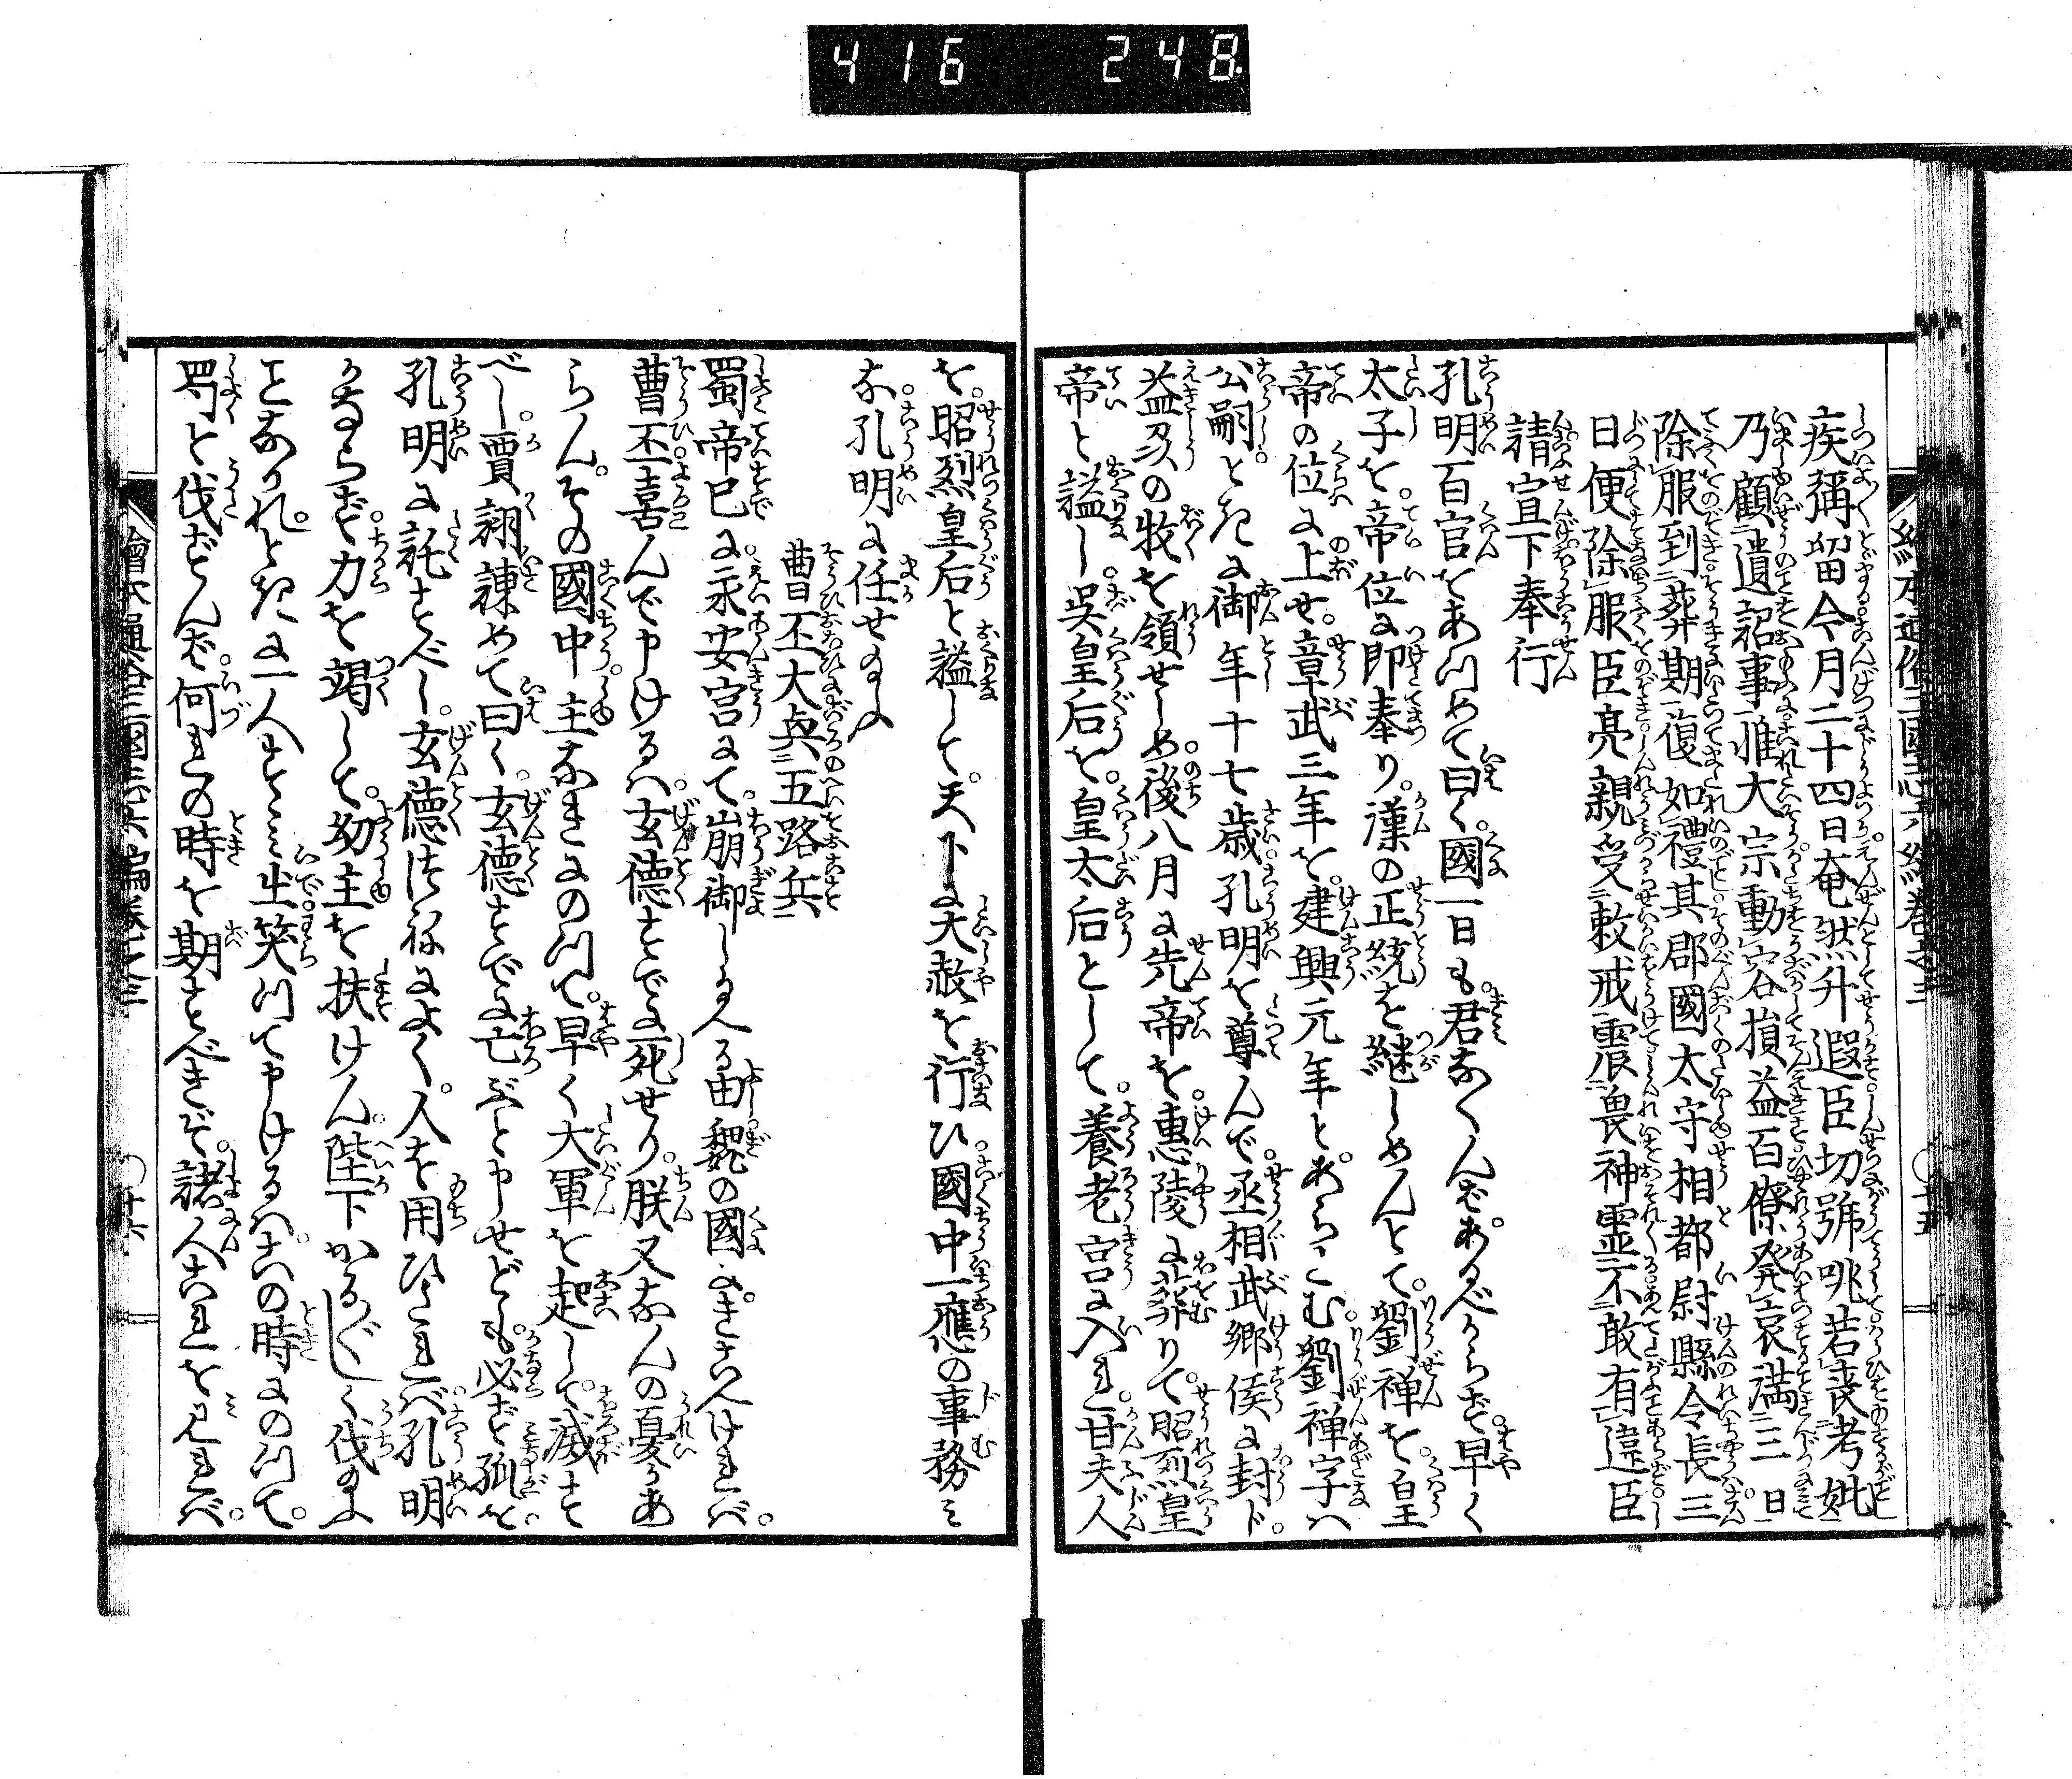 416 248
疾彌留今月二十四日奄然升遐臣切號咷若喪考妣
乃顧遺詔事惟大宗動容損益百僚発哀満三日
除服到葬期復如禮其郡國太守相都尉縣令長三
日便除服臣亮親受敕戒震畏神霊不敢有違臣
請宣下奉行
孔明百官をあつめて曰く。國一日も。君なくんばあるべからず。早く
太子を。帝位に即奉り。漢の正統を継しめんとて。劉禅を。皇
帝の位に上せ。章武三年を。建興元年と。あらこむ。劉禅字ハ
公嗣。ときに御年十七歳。孔明を尊んで。丞相武郷侯に封ド。
益州の牧を領せしめ。後八月に先帝を。惠陵に葬りて。昭烈皇
帝と謚し。呉皇后を。皇太后として。養老宮に入れ。甘夫人
を。昭烈皇后と謚して。天下に大赦を行ひ。國中一應の事務ミ
な。孔明に任せ給ふ
曹丕大興五路兵
蜀帝已に。永安宮にて。崩御しるんる由。魏の國にきこへければ。
曹丕喜んで申けるハ。玄徳すでに死せり。朕又なんの憂かあ
らん。その國中。主なきにのつて。早く大軍を起して。滅す
べし。賈詡諫めて曰く。玄徳すでに亡ぶと申せども。必ず孤を。
孔明に託すべし。玄徳つねによく。人を用ひたれバ。孔明
かならず。力を竭して。幼主を扶けん。陛下かるがるしく伐給ふ
ことなかれ。ときに一人すゝミ出。笑つて申けるハ。この時にのつて。
蜀を伐ずんバ。何れの時を期すべきぞ。諸人これを見れバ。